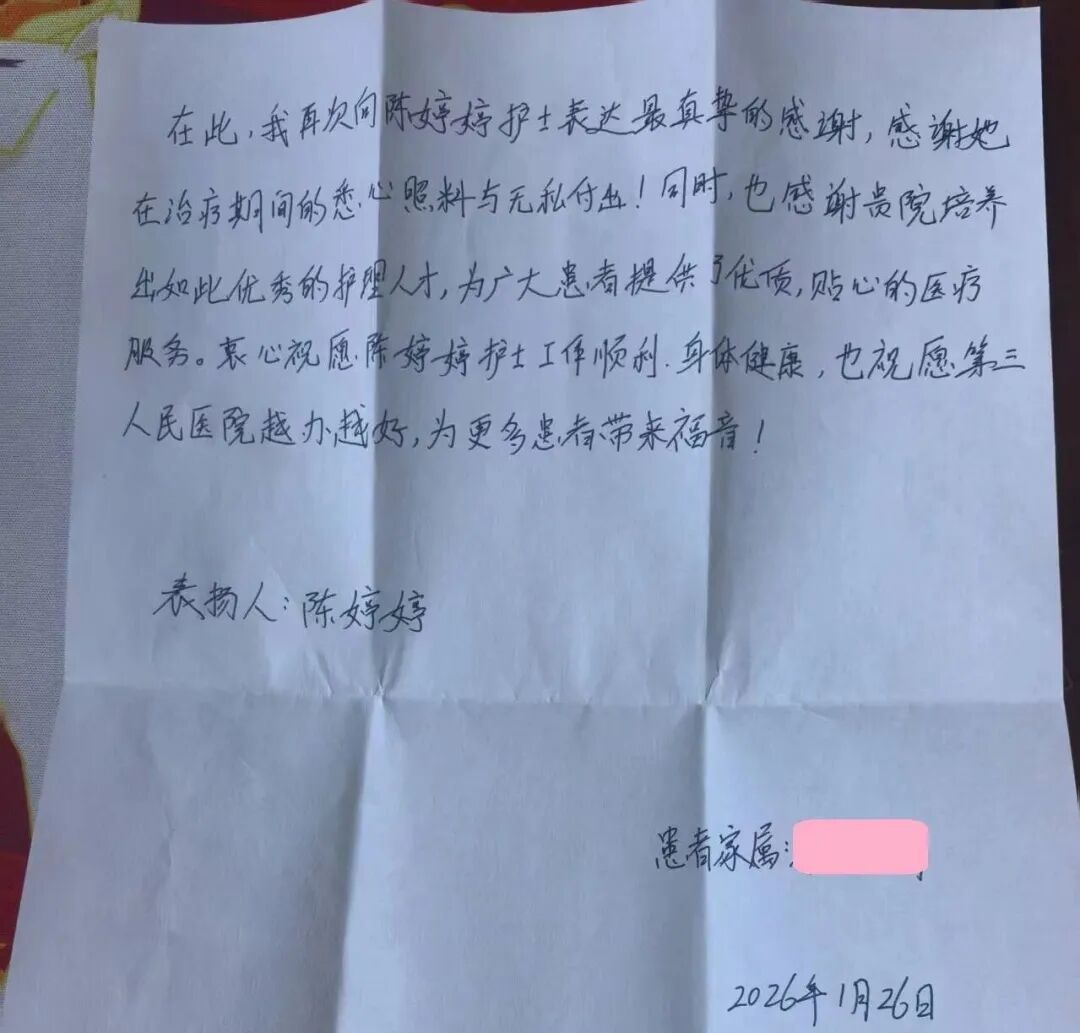 在此,我再次向陈婷婷护士表达最真挚的感谢,感谢她
在治疗期间的悉心照料与无私付出!同时,也感谢贵院培养
出如此优秀的护理人才,为广大患者提供了优质,贴心的医疗
服务。衷心祝愿陈婷婷护士工作顺利.身体健康,也祝愿第三
人民医院越办越好,为更多患者带来福音!
表扬人:陈婷婷
患者家属:
2026年1月26日